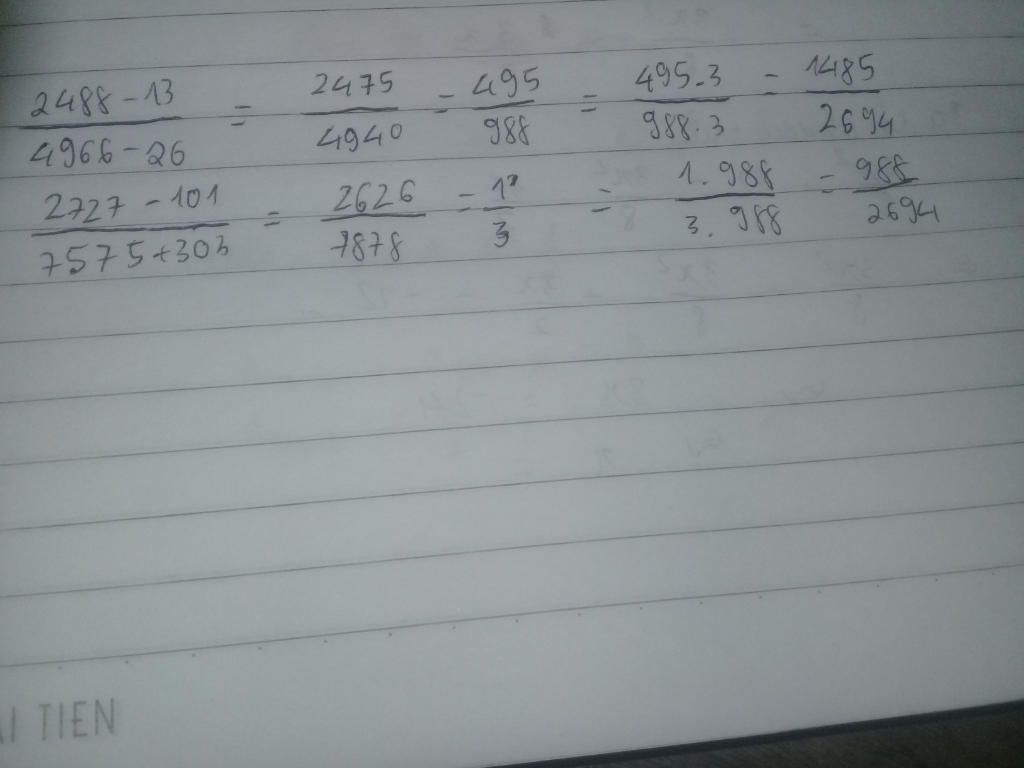 2488 - 13 / 4966 - 26 = 2475 / 4940 = 495 / 988 = 495.3 / 988.3 = 1485 / 2694
2727 - 101 / 7575 + 303 = 2626 / 7878 = 1 / 3 = 1.988 / 3.988 = 988 / 2694
AI TIEN